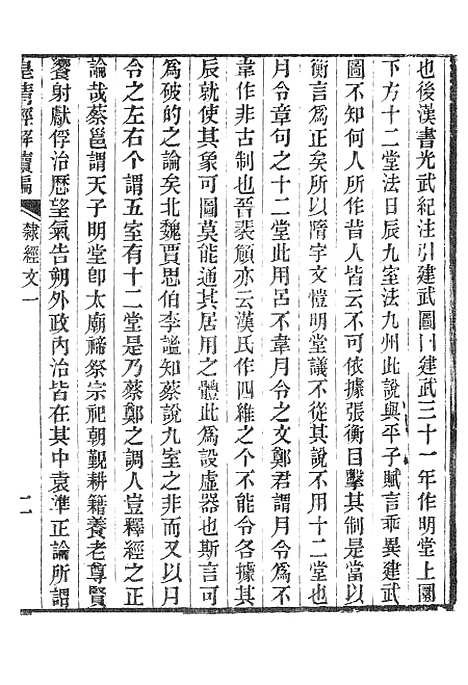 也後漢書光武紀注引建武圖曰建武三十一年作明堂上圓
下方十二堂法日辰九室法九州此說與平子賦言乖異建武
圖不知何人所作昔人皆云可依據張衡目擊其制是當以
衡言爲正矣所以隋宇文愷明堂議不從其說不用十二堂也
月令章句之十二堂此用呂不韋月令之文鄭君謂月令爲不
韋作非古制也晉裴頠亦云漢氏作四維之个不能令各據其
辰就使其象可圖莫能通其居用之體此爲設虛器也斯言可
爲破的之論矣北魏賈思伯李謐知蔡說九室之非而又以月
令之左右个謂五室有十二堂是乃蔡鄭之調人豈釋經之正
論哉蔡邕謂天子明堂卽太廟禘祭宗祀朝覲耕籍養老尊賢
饗射獻俘治厯望氣告朔外政內治皆在其中袁準正論所謂
皇清經解續編
隸經文一
二